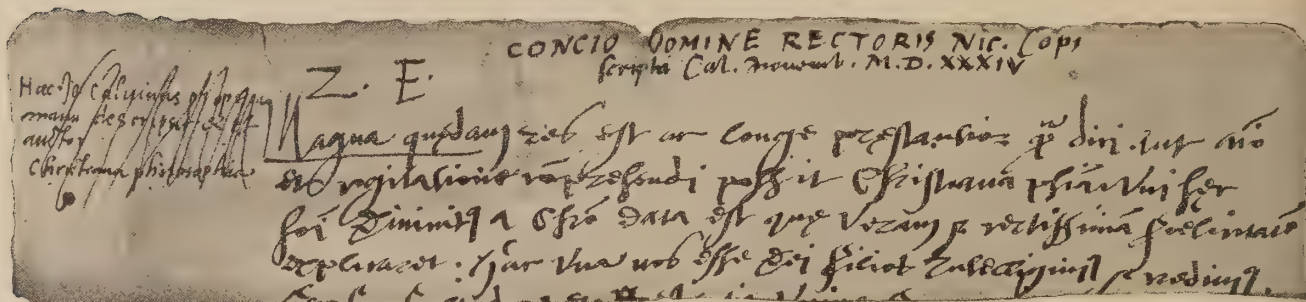 CONCIO DOMINE RECTORIS NIC. Copi
scripta Cal. Novemb. M.D. XXXIV
Z. E.
Hæc Jo Calvinus propria
manu descripsit & est
author
Christiana philosophia
Magna quędam res est ac longe pręstantior q̃ dici aut aīo
et cogitatione cōprehendi possit Christiana phīa. Uni
hoī divinitꝰ a Chrō data est quę veram & certissimā fœlicitatē
explicaret. Hac una nos esse Dei filios intelligimꝰ & credimꝰ.